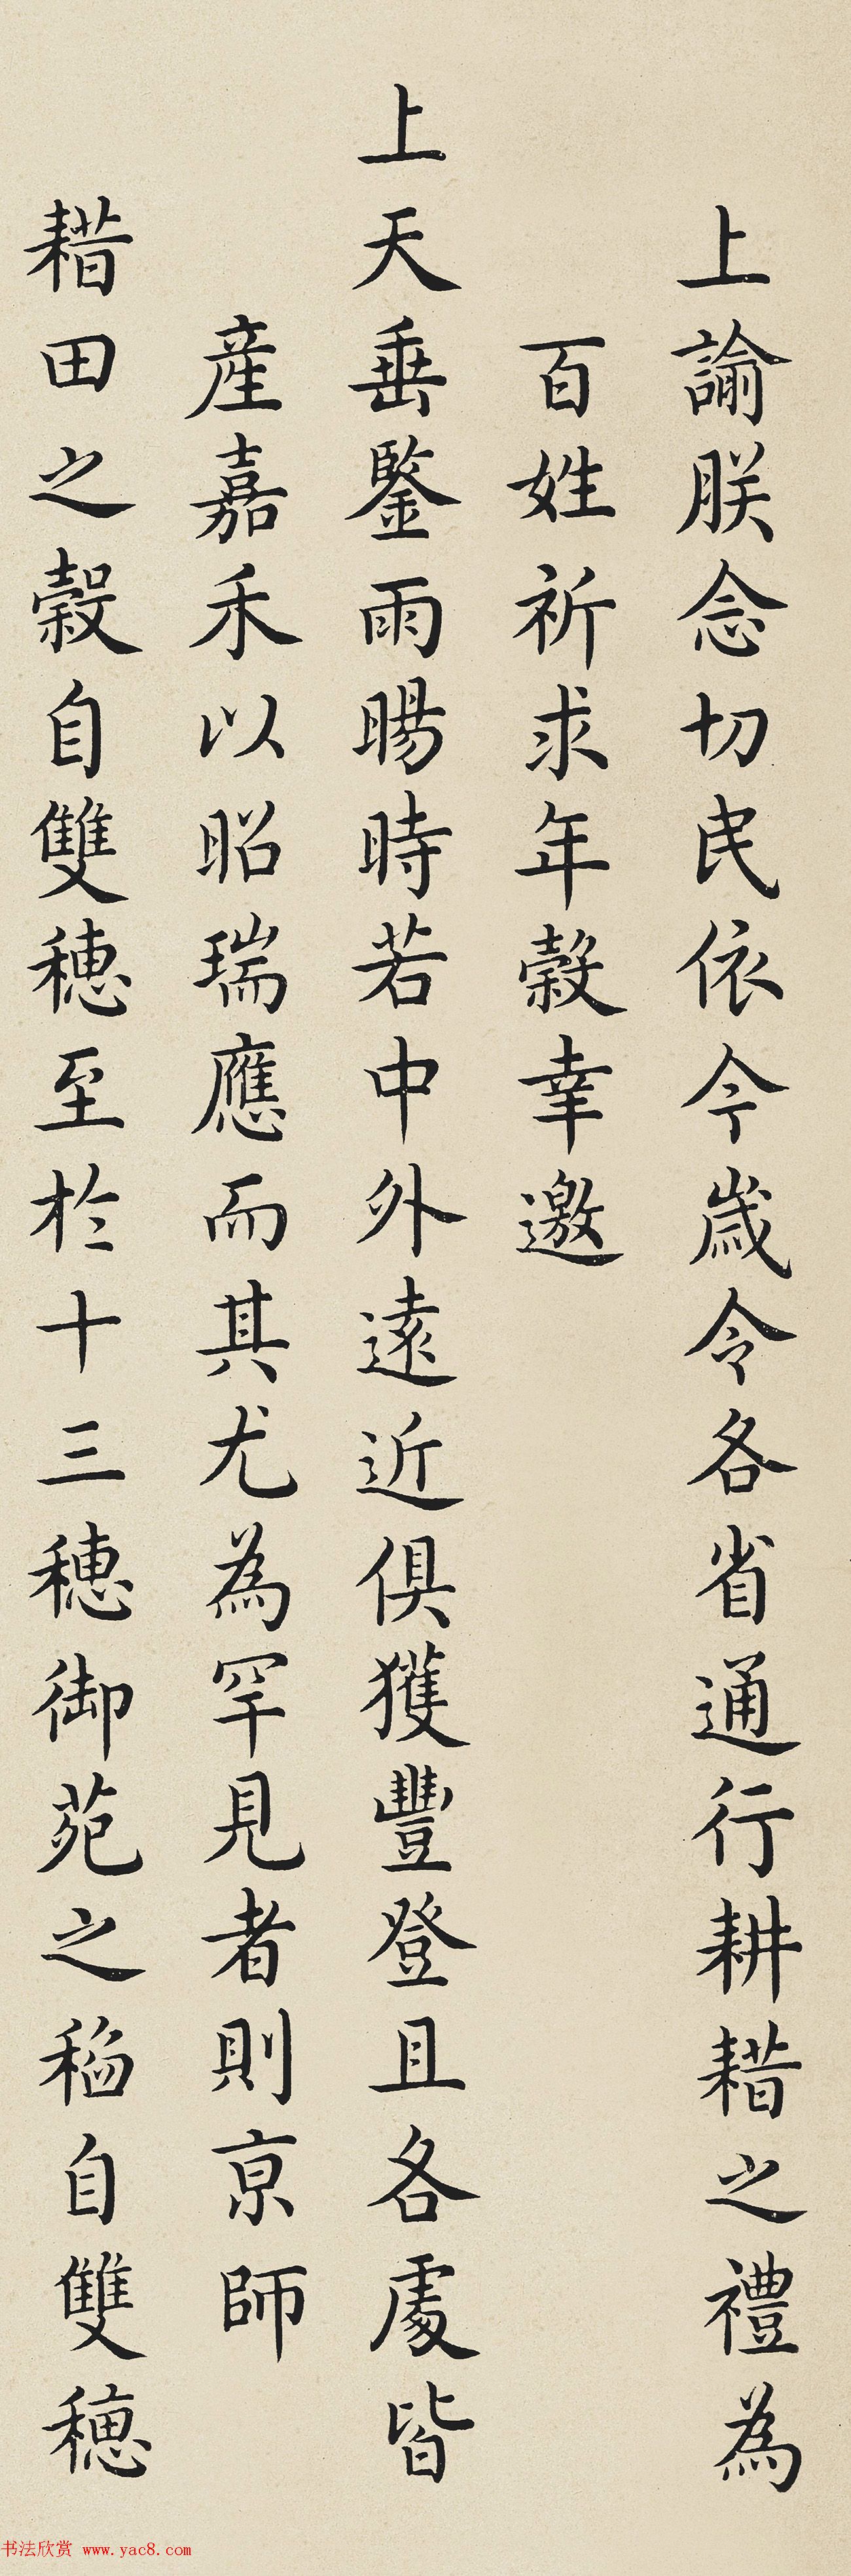 上諭朕念切民依今歲令各省通行耕耤之禮為
百姓祈求年穀幸邀
上天垂鑒雨暘時若中外遠近俱獲豐登且各處皆
產嘉禾以昭瑞應而其尤為罕見者則京師
耤田之穀自雙穗至於十三穗御苑之稻自雙穗
书法欣赏 www.yac8.com